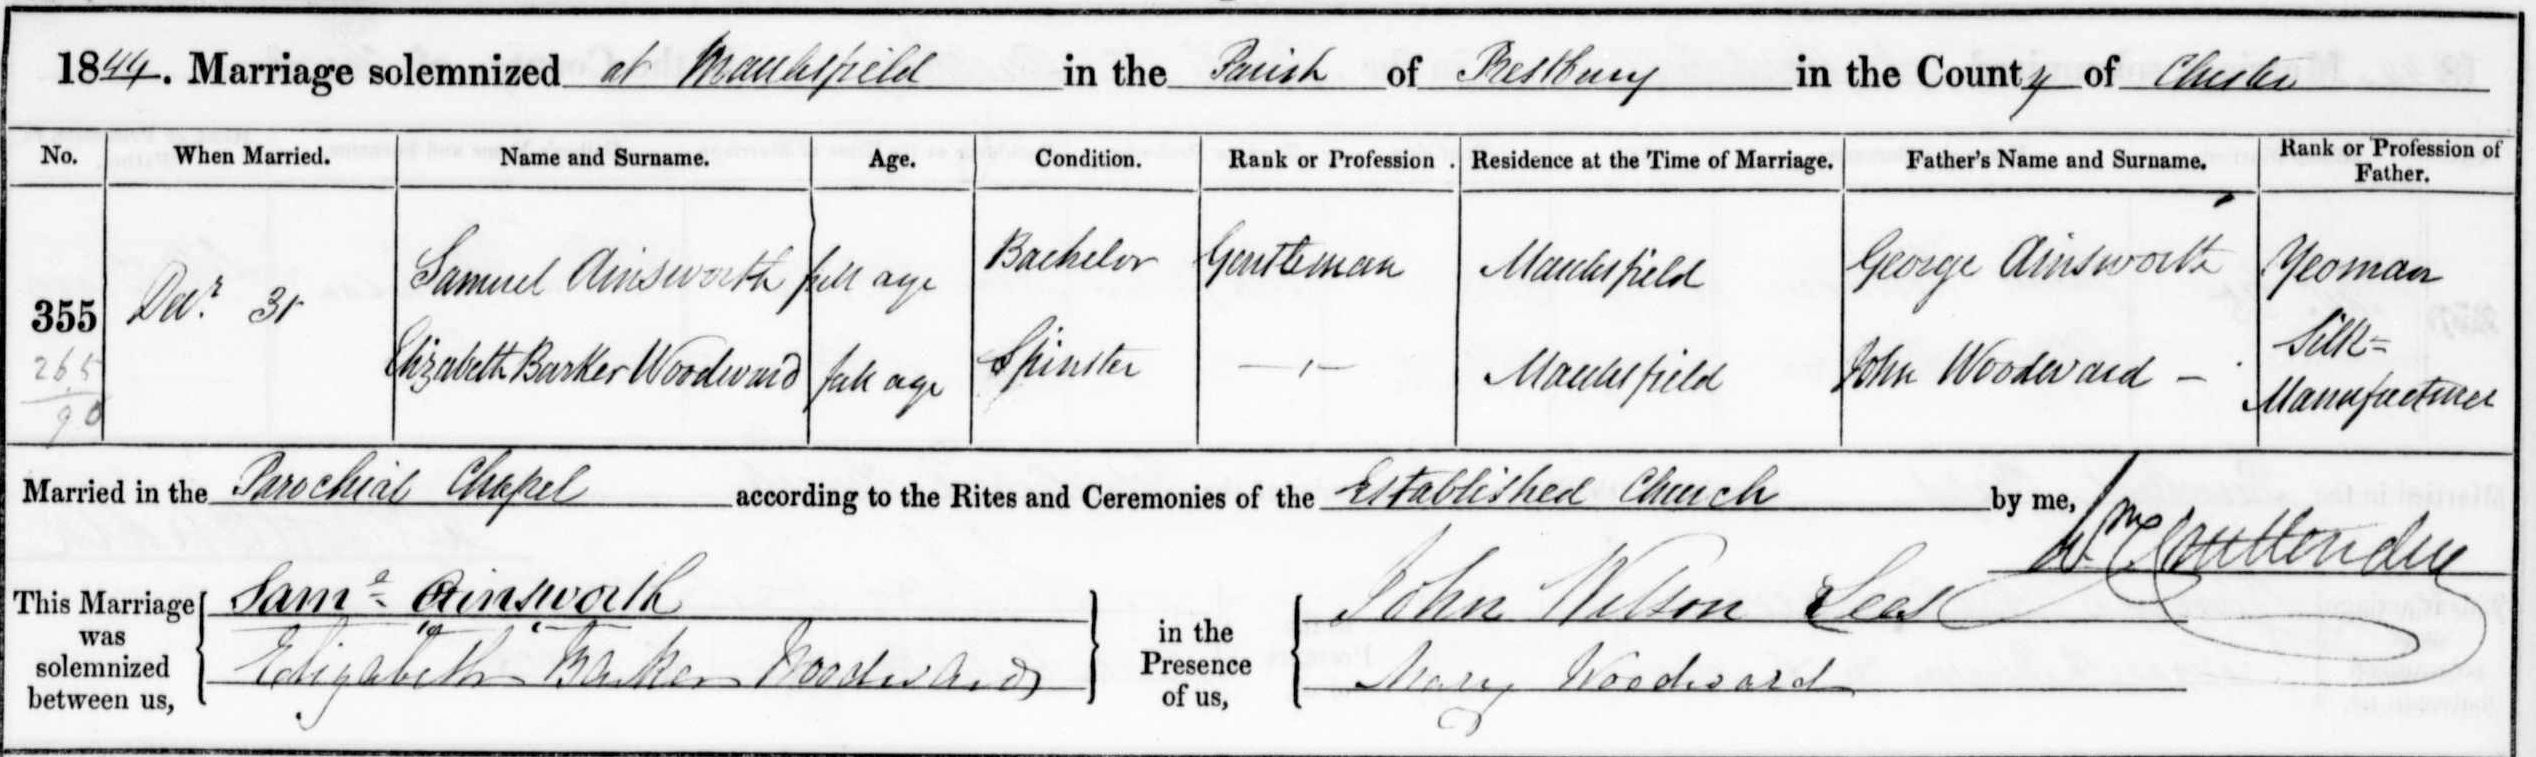 1844. Marriage solemnized at Macclesfield in the Parish of Prestbury in the County of Chester
No. When Married. Name and Surname. Age. Condition. Rank or Profession. Residence at the Time of Marriage. Father's Name and Surname. Rank or Profession of Father.
355 Decr. 31 Samuel Ainsworth full age Bachelor Gentleman Macclesfield George Ainsworth Yeoman
Elizabeth Barker Woodward full age Spinster —,— Macclesfield John Woodward — Silk=
Manufacturer
265
90
Married in the Parochial Chapel according to the Rites and Ceremonies of the Established Church by me,
This Marriage was solemnized between us, Saml. Ainsworth in the Presence of us, John Wilson
Elizabeth Barker Woodward Mary Woodward